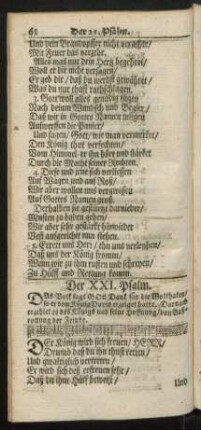 62 Der 21. Psalm.
Und dein Brandopffer nicht verachte/
Mit Feuer das verzehr.
Alles was nur dein Hertz begehret/
Woll er dir nicht versagen/
Er geb dir / daß du werdst gewähret/
Was du nur thust rathschlagen.
3. Gott woll alles genädig fügen
Nach deinem Wundsch und Begier/
Daß wir in Gottes Namen mögen
Auffwerffen die Panier/
Und sagen / Gott / wie man vermercket/
Den König thut versechten/
Vom Himmel er ihn hört und stärcket
Durch die Macht seiner Rechten.
4. Diese und jene sich verliessen
Auf Wagen und auf Roß/
Wir aber wollen uns vergwissen
Auf Gottes Namen groß.
Derhalben sie gestürtzt darnieder/
Musten zu boden gehen/
Wir aber sehr gestärckt hinwieder
Vest aufgerichtet nun stehen.
5. Errett uns Herr / thu uns verleyhen/
Daß uns der König fromm/
Wenn wir zu ihm ruffen und schreyen/
Zu Hülff und Rettung komm.
Der XXI. Psalm.
DAs Volck sagt GOtt Danck für die Wolthaten/
so er dem König David erzeiget hatte. Darnach
erzehlet es des Königs und seine Hoffnung / von Auß-
rottung der Feinde.
DEr König wird sich freuen / HERR/
Drumb daß du ihn thust retten/
Und gwaltiglich vertretten/
Er wird sich deß erfreuen sehr/
Daß du ihm Hülff beweist/
Und